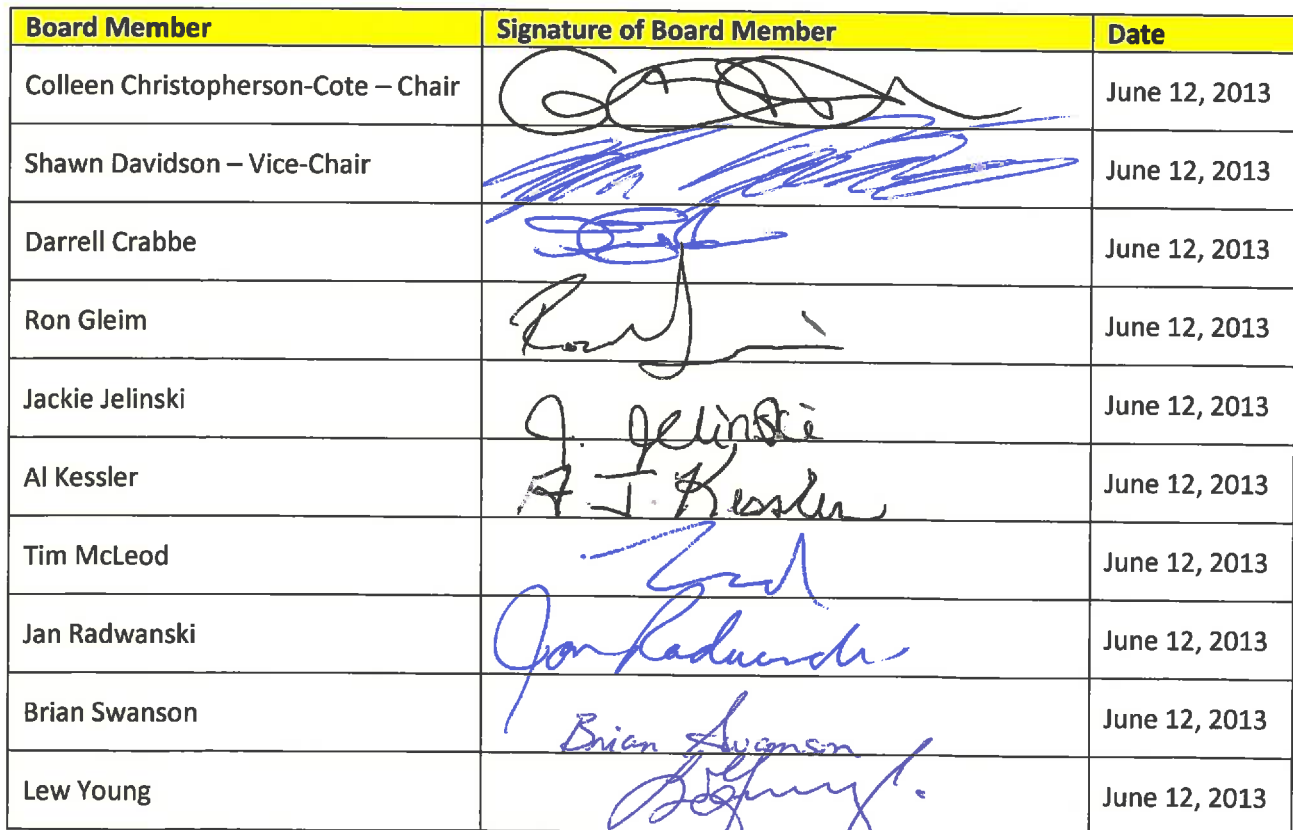 Board Member Signature of Board Member Date
Colleen Christopherson-Cote – Chair June 12, 2013
Shawn Davidson – Vice-Chair June 12, 2013
Darrell Crabbe June 12, 2013
Ron Gleim June 12, 2013
Jackie Jelinski J. Jelinski June 12, 2013
Al Kessler A J. Kessler June 12, 2013
Tim McLeod June 12, 2013
Jan Radwanski Jan June 12, 2013
Brian Swanson Brian Swanson June 12, 2013
Lew Young June 12, 2013